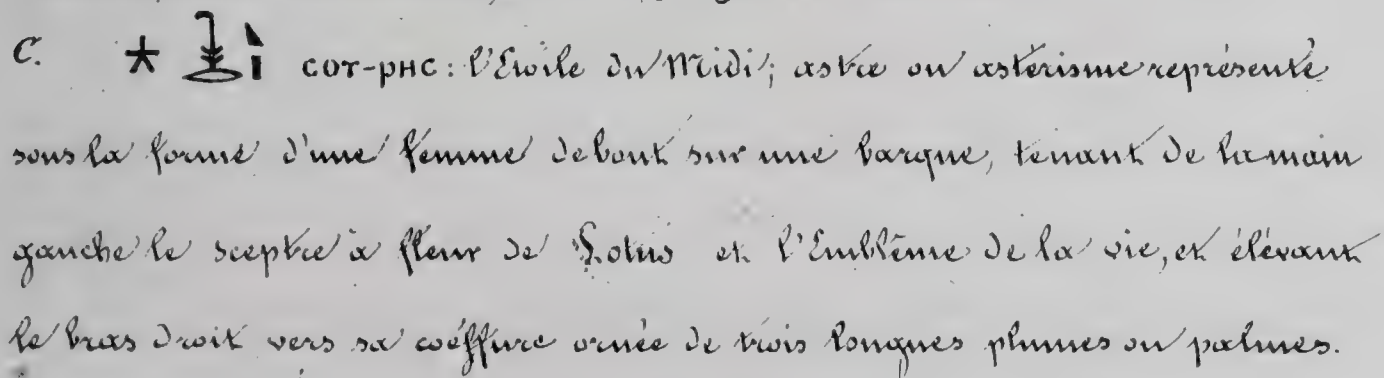 C. ⲥⲟⲩ-ⲣⲏⲥ: l'Etoile du Midi; astre ou astérisme représenté
sous la forme d'une femme debout sur une barque, tenant de la main
gauche le sceptre à fleur de Lotus et l'Emblême de la vie, et élévant
le bras droit vers sa coéffure ornée de trois longues plumes ou palmes.